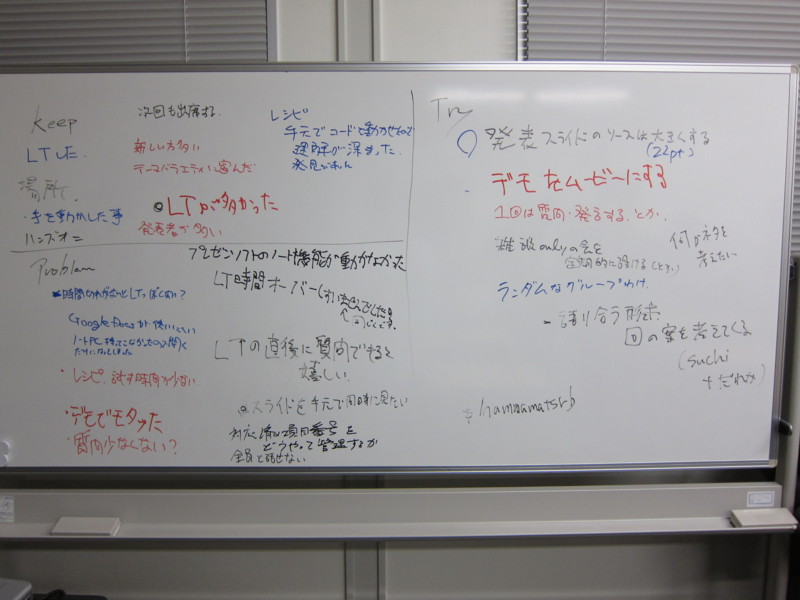 Keep
LTした.
場所て.
・手を動かした事
ハンズオン
次回も出席する.
新しい方多い
テーマバラエティに富んだ
LTが多かった
発表者が多い
レシピ
手元でコードを動かせたので
理解が深まった.
発見があった
Problem
時間切れがないとLTっぽくない?
Google Docsが使いにくい
ノートPC持ってこなかったので聞く
だけになりました
・レシピ、試す時間が少ない
・デモでモタツた
・質問少なくない?
プレゼンソフトのノート機能が動かなかった
LT時間オーバー
LTの直後に質問できると
嬉しい.
スライドを手元で同時に見たい
対応済の項目番号を
どうやって管理するか
全員と話せない
Try
発表スライドのソースは大きくする
(22pt)
デモをムービーにする
1回は質問・発言する.とか.
雑談onlyの会を
定期的に設ける
何かネタを
考えたい
ランダムなグループわけ.
語り合う形式
回の案を考えてくる
(suchi
+だれか)
#hamamatsurb